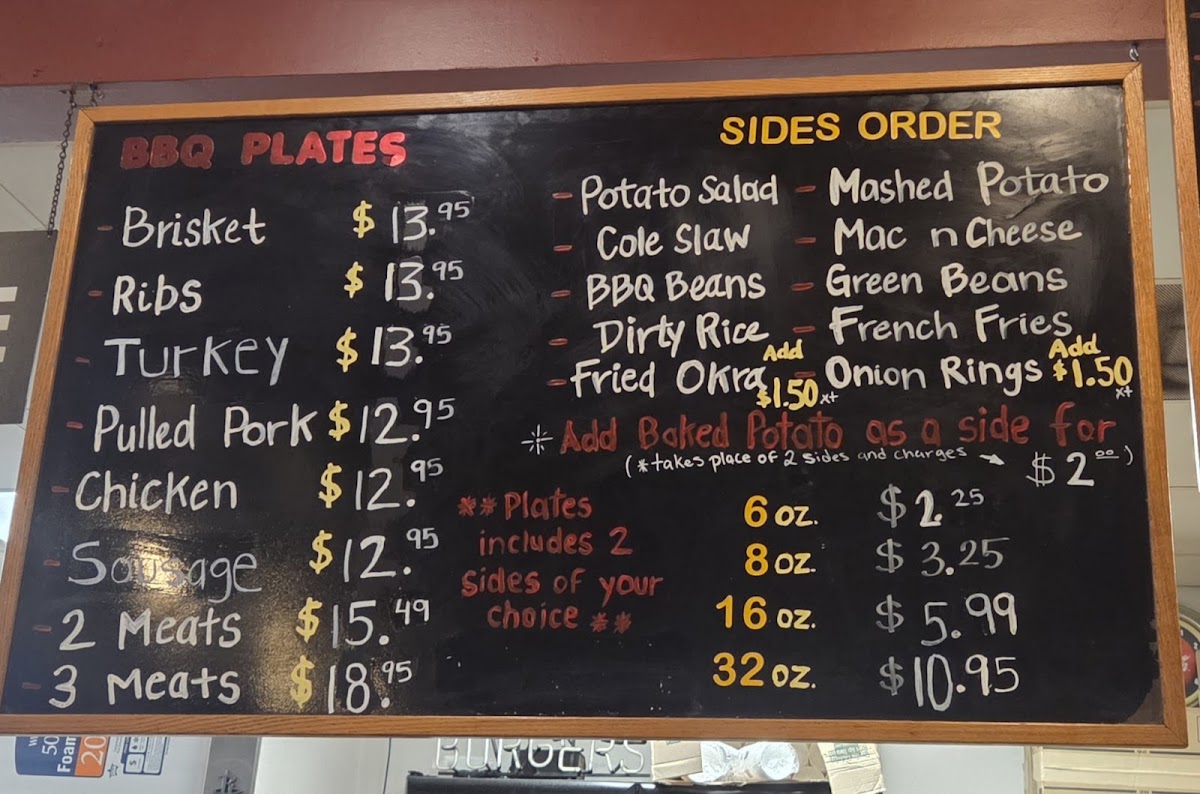 BBQ PLATES
- Brisket $13.95
- Ribs $13.95
- Turkey $13.95
- Pulled Pork $12.95
- Chicken $12.95
- Sausage $12.95
- 2 Meats $15.49
- 3 Meats $18.95
**Plates
includes 2
sides of your
choice **
SIDES ORDER
- Potato Salad - Mashed Potato
- Cole Slaw - Mac n Cheese
- BBQ Beans - Green Beans
- Dirty Rice - French Fries
- Fried Okra Add $1.50 xt - Onion Rings Add $1.50 xt
* Add Baked Potato as a side for
(*takes place of 2 sides and charges → $2.00)
6 oz. $2.25
8 oz. $3.25
16 oz. $5.99
32 oz. $10.95
50
Foam
20
BURGERS